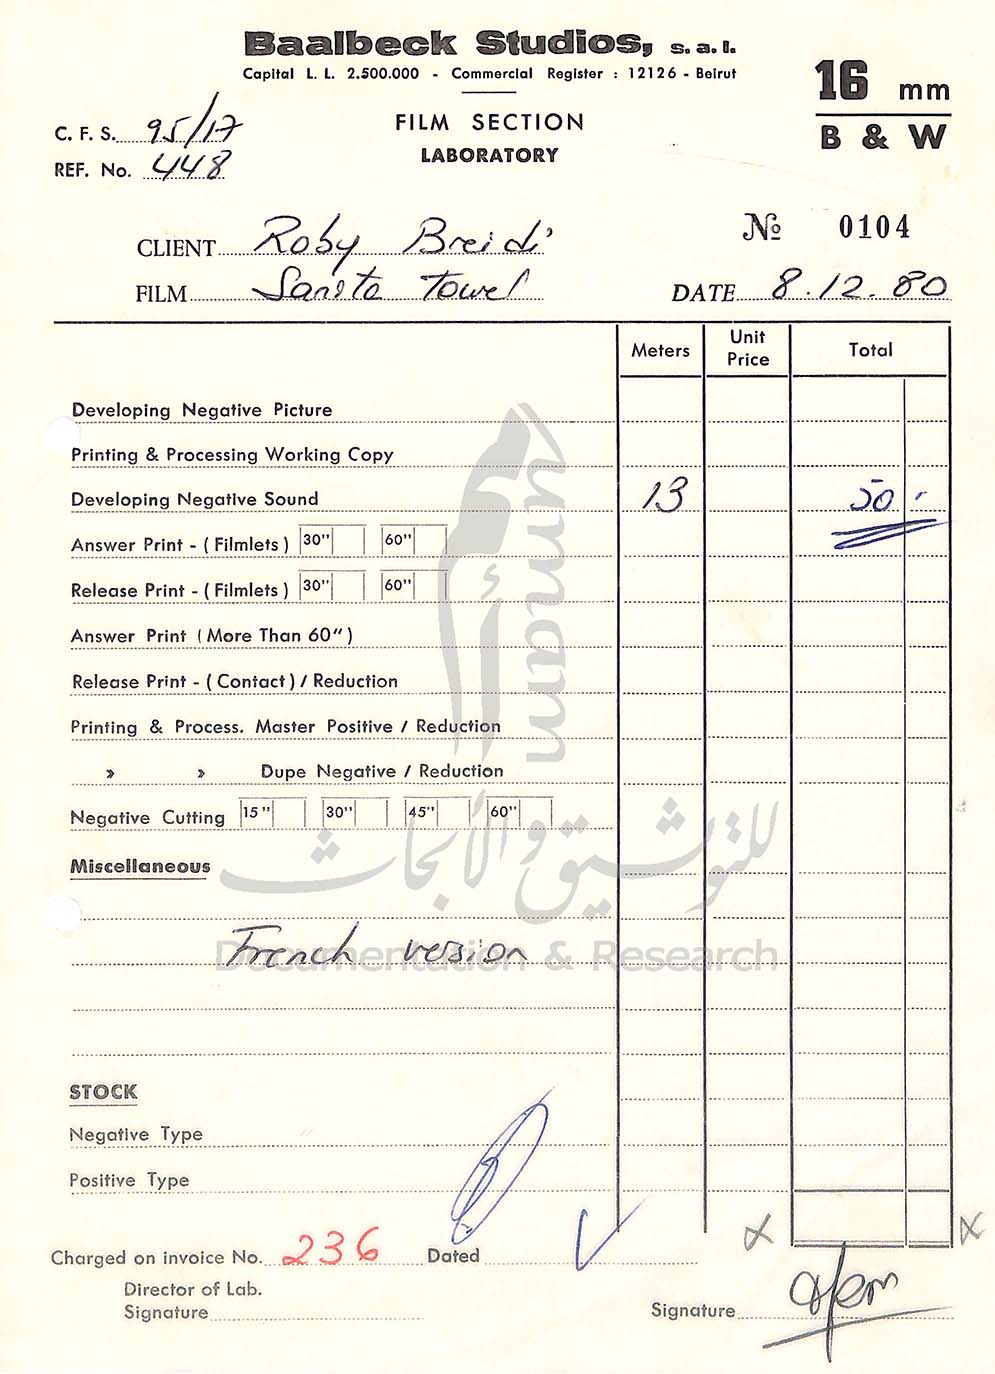 Baalbeck Studios, s.a.l.
Capital L. L. 2.500.000 - Commercial Register : 12126 - Beirut
16 mm
B & W
FILM SECTION
LABORATORY
C. F. S. 95/17
REF. No. 448
CLIENT Roby Breidi
№ 0104
FILM Sanita Towel
DATE 8.12.80
Meters Unit Price Total
Developing Negative Picture
Printing & Processing Working Copy
Developing Negative Sound 13 50 -
Answer Print - ( Filmlets ) 30" 60"
Release Print - ( Filmlets ) 30" 60"
Answer Print ( More Than 60" )
Release Print - ( Contact ) / Reduction
Printing & Process. Master Positive / Reduction
» » Dupe Negative / Reduction
Negative Cutting 15" 30" 45" 60"
Miscellaneous
French version
STOCK
Negative Type
Positive Type
Charged on invoice No. 236 Dated
Director of Lab.
Signature
Signature
umam
أمم
للتوثيق والأبحاث
Documentation & Research